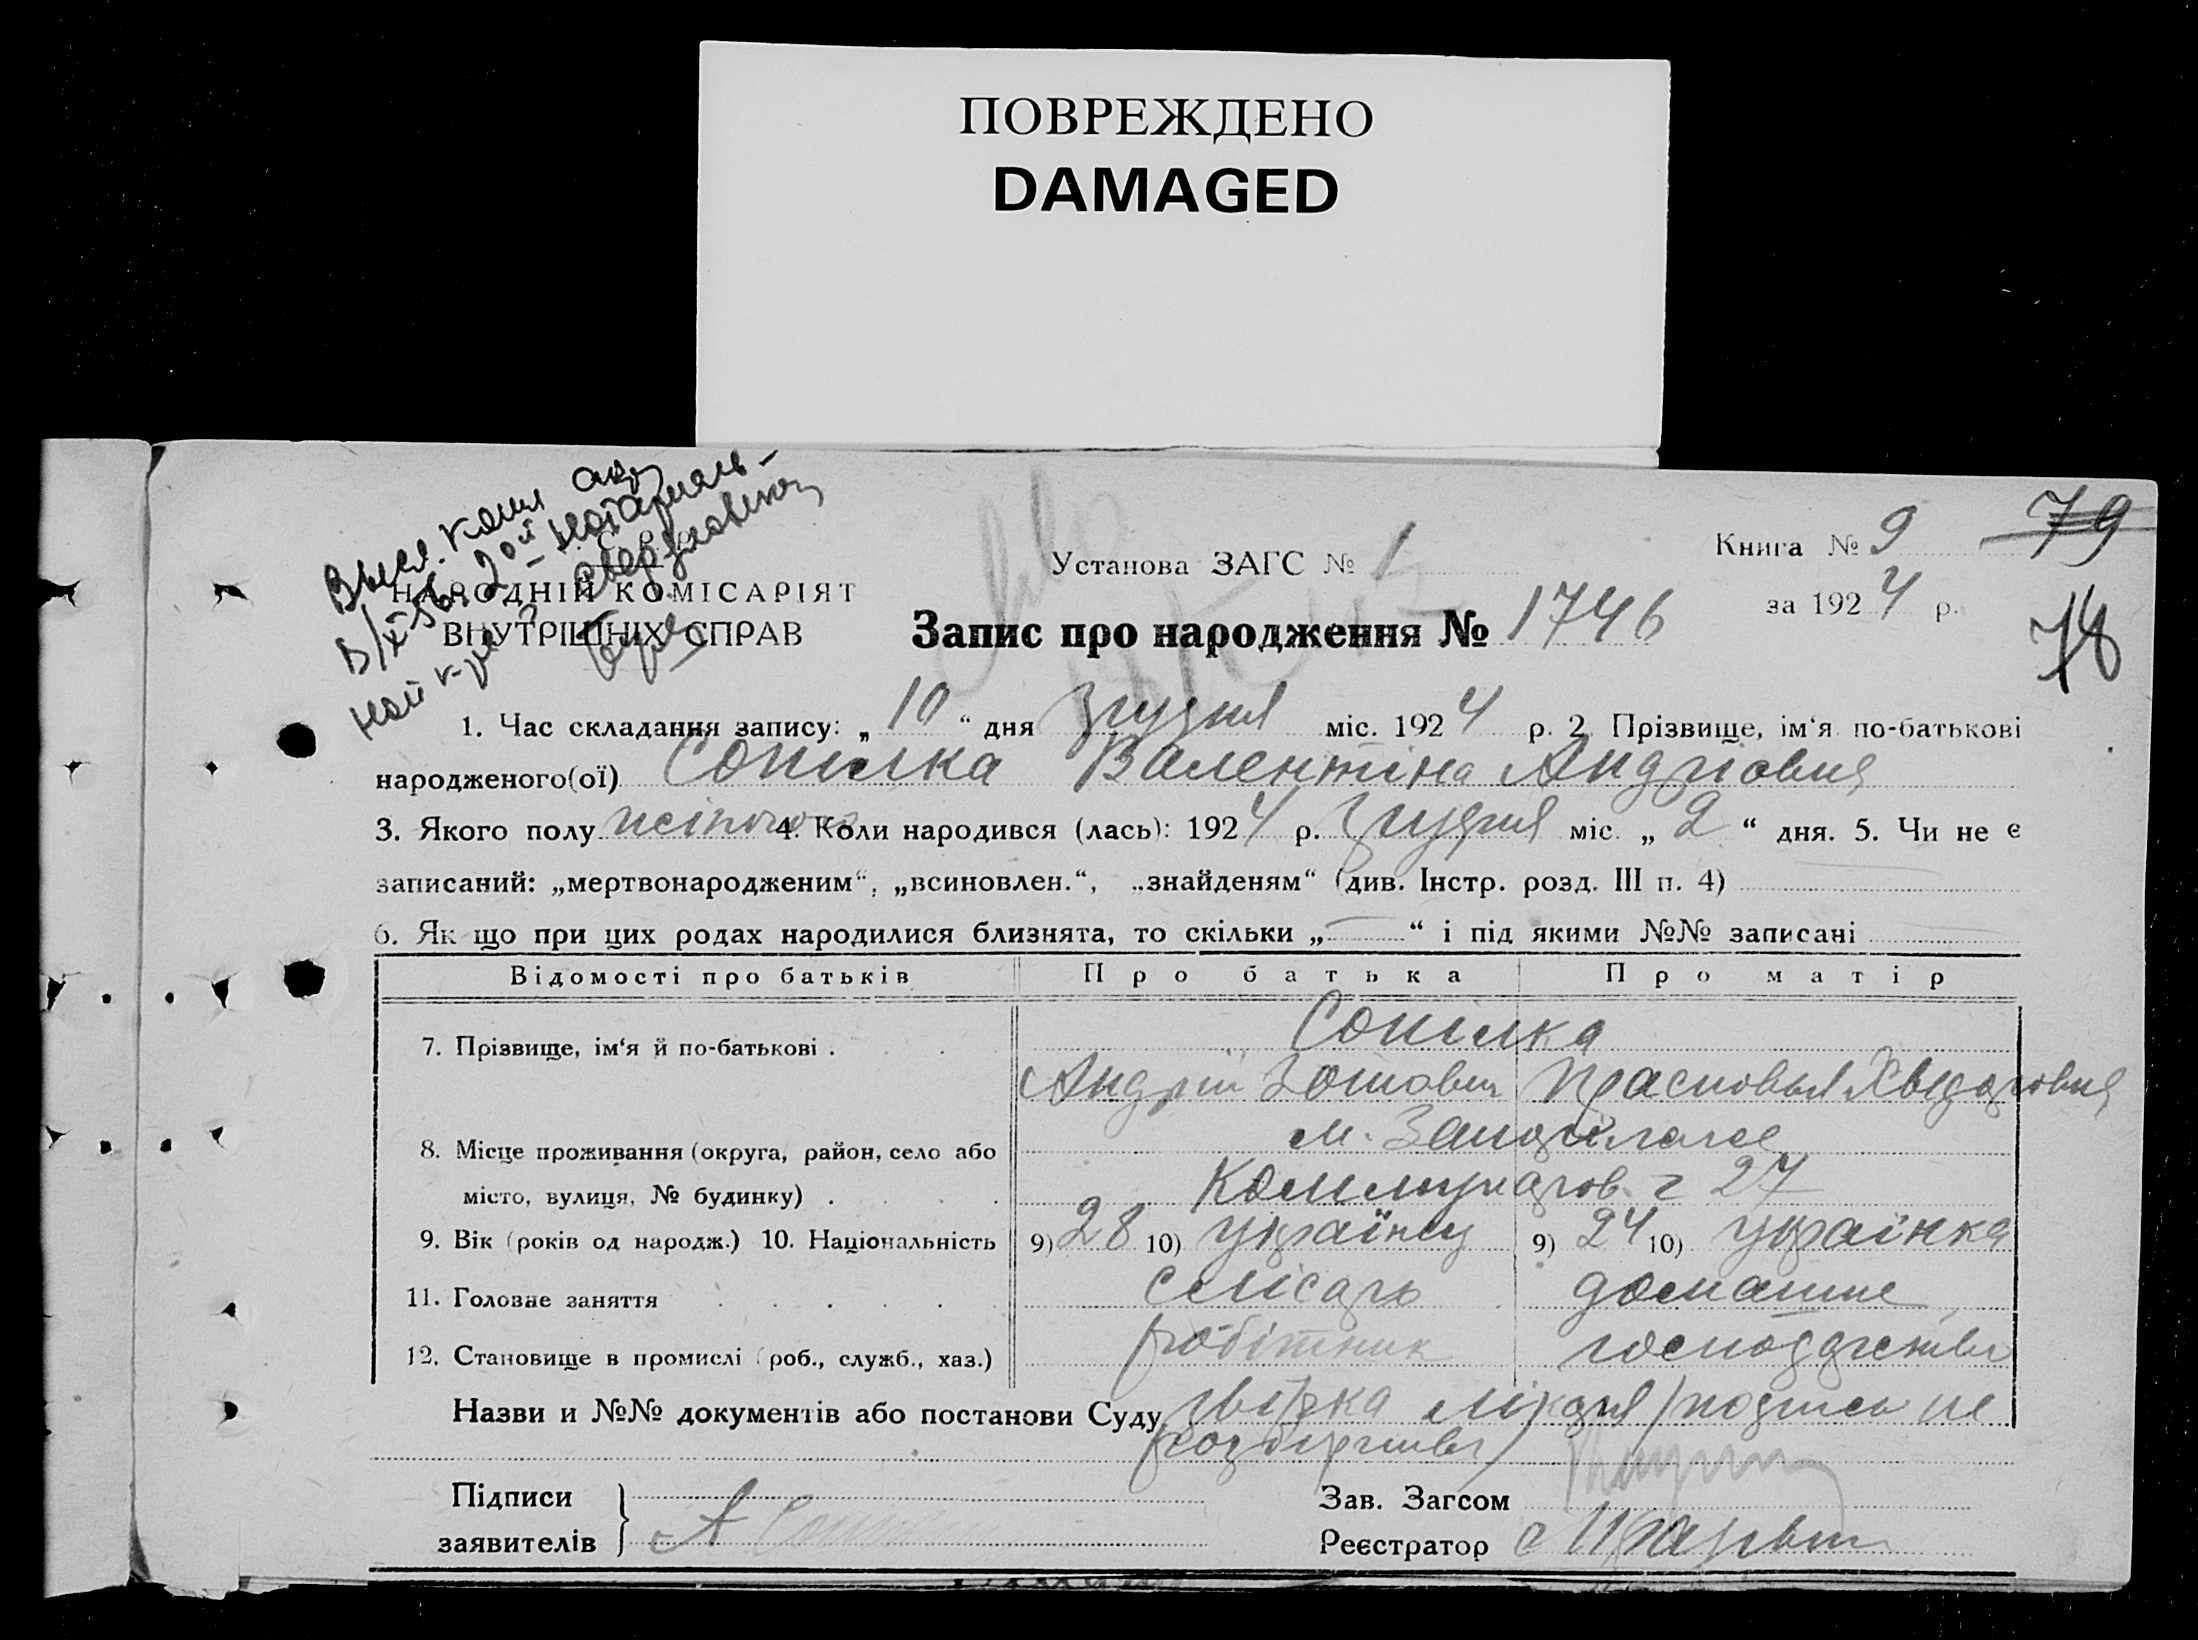 ПОВРЕЖДЕНО
DAMAGED
Высл. копия акт
В/IX-56. 2ой нотариаль-
ной к-ре
79
Книга № 9
Установа ЗАГС № 1
за 1924 р.
78
НАРОДНІЙ КОМІСАРІЯТ
ВНУТРІШНІХ СПРАВ
Запис про народження № 1746
1. Час складання запису: „10“ дня грудня міс. 1924 р. 2. Прізвище, ім‘я по-батькові
народженого(ої) Сопілка Валентіна Андріовна
3. Якого полу жіночого 4. Коли народився (лась): 1924 р. грудня міс. „2“ дня. 5. Чи не є
записаний: „мертвонародженим“, „всиновлен.“, „знайденям“ (див. Інстр. розд. III п. 4)
6. Як що при цих родах народилися близнята, то скільки „—“ і під якими №№ записані
Відомості про батьків Про батька Про матір
7. Прізвище, ім‘я й по-батькові . Сопілка
Андрій Зотович Прасковья Хведоровна
8. Місце проживання (округа, район, село або м. Запоріжжє
місто, вулиця, № будинку) . Коммунаров. 27
9. Вік (років од народж.) 10. Національність 9) 28 10) українец 9) 24 10) українка
11. Головне заняття слісарь домашнє
12. Становище в промислі (роб., служб., хаз.) робітник господарство
Назви и №№ документів або постанови Суду звістка лікаря /подпись не
розбірчива/
Підписи
заявителів А
Зав. Загсом
Реєстратор